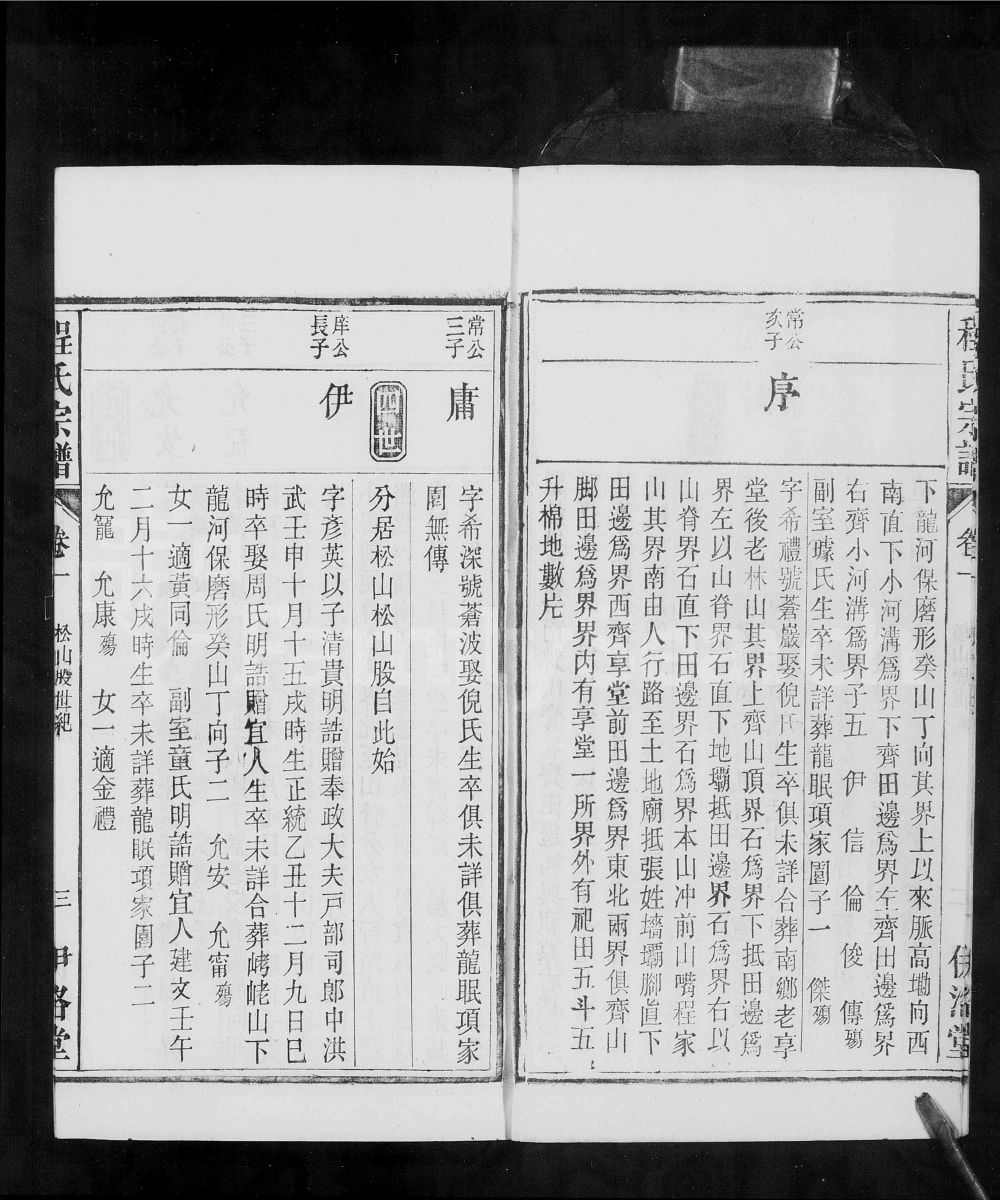 程氏宗譜 卷一
下龍河保磨形癸山丁向其界上以來脈高墈向西
南直下小河溝爲界下齊田邊爲界左齊田邊爲界
右齊小河溝爲界子五 伊 信 倫 俊 傳殤
副室璩氏生卒未詳葬龍眠項家園子一 傑殤
常公
亥子
序
字希禮號蒼巖娶倪氏生卒俱未詳合葬南鄉老享
堂後老林山其界上齊山頂界石爲界下抵田邊爲
界左以山脊界石直下地壩抵田邊界石爲界右以
山脊界石直下田邊界石爲界本山冲前山嘴程家
山其界南由人行路至土地廟抵張姓墻壩腳直下
田邊爲界西齊享堂前田邊爲界東北兩界俱齊山
脚田邊爲界界內有享堂一所界外有祀田五斗五
升棉地數片
常公
三子
庸
字希深號蒼波娶倪氏生卒俱未詳俱葬龍眠項家
園無傳
四世
分居松山松山股自此始
庠公
長子
伊
字彥英以子清貴明誥贈奉政大夫戸部司郎中洪
武壬申十月十五戌時生正統乙丑十二月九日巳
時卒娶周氏明誥贈宜人生卒未詳合葬峔峔山下
龍河保磨形癸山丁向子二 允安 允甯殤
女一適黄同倫 副室童氏明誥贈宜人建文壬午
二月十六戌時生卒未詳葬龍眠項家園子二
允寵 允康殤 女一適金禮
程氏宗譜 卷一 松山股世紀 三 伊洛堂